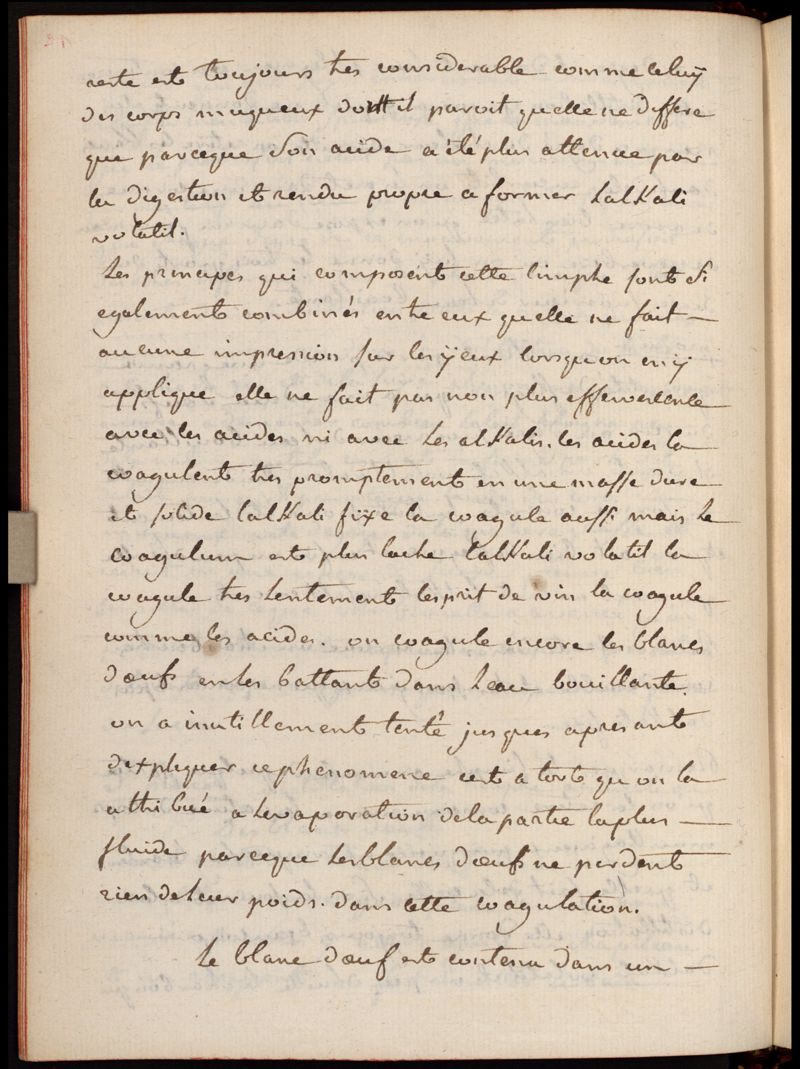 reste est toujours tres considerable comme celuÿ
des corps muqueux dont il paroit quelle ne differe
que parceque Son acide a été plus attenué par
la digestion et rendu propre a former Lalkali
volatil.
Les principes qui composent cette limphe sont Si
egalement combinés entre eux quelle ne fait —
aucune impression sur les ÿeux lorsquon en ÿ
applique elle ne fait pas non plus effervescence
avec les acides ni avec Les alkalis. les acides la
coagulent tres promptement en une masse dure
et solide lalkali fixe la coagule aussi mais Le
coagulum est plus lache lalkali volatil la
coagule tres Lentement lesprit de vin la coagule
comme les acides. on coagule encore les blancs
dœufs en les battants dans Leau bouillante.
on a inutillement tenté jusques apresante
dexpliquer ce phenomene cest a torts qu on la
attribué a Levaporation de la partie la plus —
fluide parceque Les blancs dœufs ne perdent
rien de Leur poids. dans cette coagulation.
Le blanc dœuf est contenu dans un —